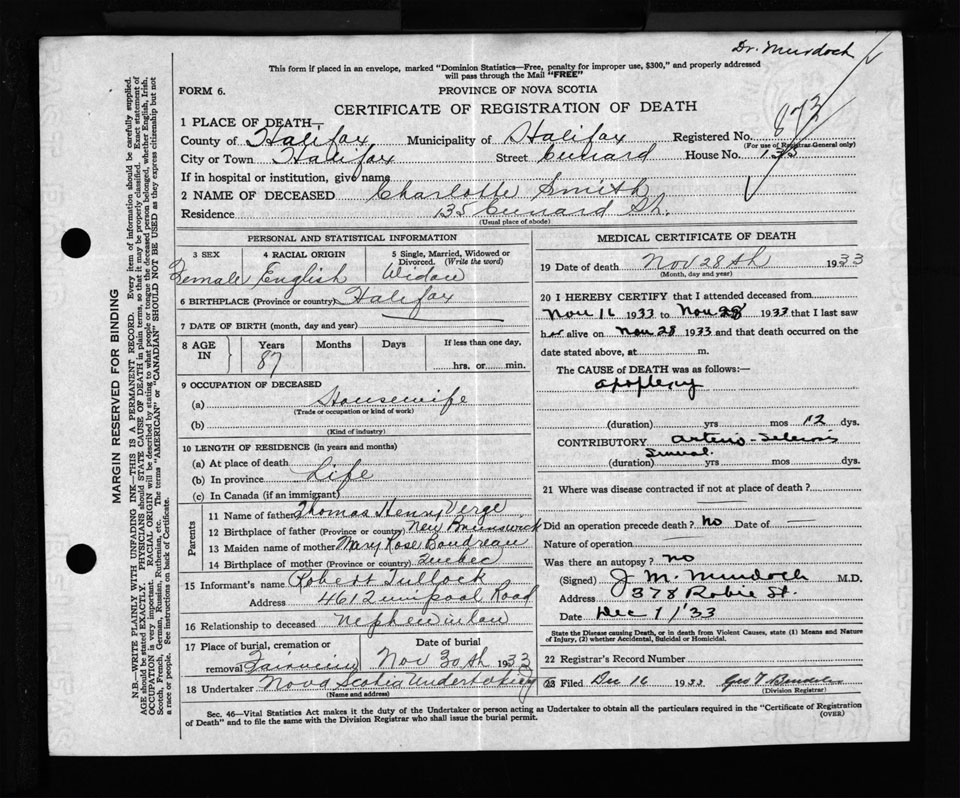 Dr. Murdoch
This form if placed in an envelope, marked "Dominion Statistics—Free, penalty for improper use, $300," and properly addressed
will pass through the Mail "FREE"
FORM 6.
PROVINCE OF NOVA SCOTIA
CERTIFICATE OF REGISTRATION OF DEATH
1 PLACE OF DEATH—
County of Halifax Municipality of Halifax Registered No. 873
(For use of Registrar General only)
City or Town Halifax Street Cunard House No. 135
If in hospital or institution, give name
2 NAME OF DECEASED Charlotte Smith
Residence 135 Cunard St.
(Usual place of abode)
PERSONAL AND STATISTICAL INFORMATION
3 SEX 4 RACIAL ORIGIN 5 Single, Married, Widowed or Divorced. (Write the word)
Female English Widow
6 BIRTHPLACE (Province or country) Halifax
7 DATE OF BIRTH (month, day and year)
8 AGE IN Years Months Days If less than one day,
87 hrs. or min.
9 OCCUPATION OF DECEASED
(a) Housewife
(Trade or occupation or kind of work)
(b)
(Kind of industry)
10 LENGTH OF RESIDENCE (in years and months)
(a) At place of death
(b) In province Life
(c) In Canada (if an immigrant)
Parents
11 Name of father Thomas Henry Verge
12 Birthplace of father (Province or country) New Brunswick
13 Maiden name of mother Mary Rose Boudreau
14 Birthplace of mother (Province or country) Quebec
15 Informant's name Robert Tullock
Address Road
16 Relationship to deceased Nephew in law
17 Place of burial, cremation or removal Fairview
Date of burial Nov 30th 1933
18 Undertaker Nova Scotia Undertaking
(Name and address)
MEDICAL CERTIFICATE OF DEATH
19 Date of death Nov 28th 1933
(Month, day and year)
20 I HEREBY CERTIFY that I attended deceased from
Nov 16 1933 to Nov 28 1933 that I last saw
her alive on Nov 28 1933 and that death occurred on the
date stated above, at m.
The CAUSE of DEATH was as follows:—
apoplexy
(duration) yrs mos 12 dys.
CONTRIBUTORY arterio-sclerosis
(duration) yrs mos dys.
21 Where was disease contracted if not at place of death?
Did an operation precede death? no Date of —
Nature of operation —
Was there an autopsy? no
(Signed) J. M. Murdoch M.D.
Address 378 Robie St.
Date Dec 1/'33
State the Disease causing Death, or in death from Violent Causes, state (1) Means and Nature
of Injury, (2) whether Accidental, Suicidal or Homicidal.
22 Registrar's Record Number
23 Filed Dec 16 1933 Geo T
(Division Registrar)
Sec. 46—Vital Statistics Act makes it the duty of the Undertaker or person acting as Undertaker to obtain all the particulars required in the "Certificate of Registration
of Death" and to file the same with the Division Registrar who shall issue the burial permit.
(OVER)
MARGIN RESERVED FOR BINDING
N.B.—WRITE PLAINLY WITH UNFADING INK—THIS IS A PERMANENT RECORD. Every item of information should be carefully supplied.
AGE should be stated EXACTLY. PHYSICIANS should STATE CAUSE OF DEATH in plain terms, so that it may be properly classified. Exact statement of
OCCUPATION is very important. RACIAL ORIGIN will be described by stating to what people or tongue the deceased person belonged, whether English, Irish,
Scotch, French, German, Russian, Ruthenian, etc. The terms "AMERICAN" or "CANADIAN" SHOULD NOT BE USED as they express citizenship but not
a race or people. See instructions on back of Certificate.